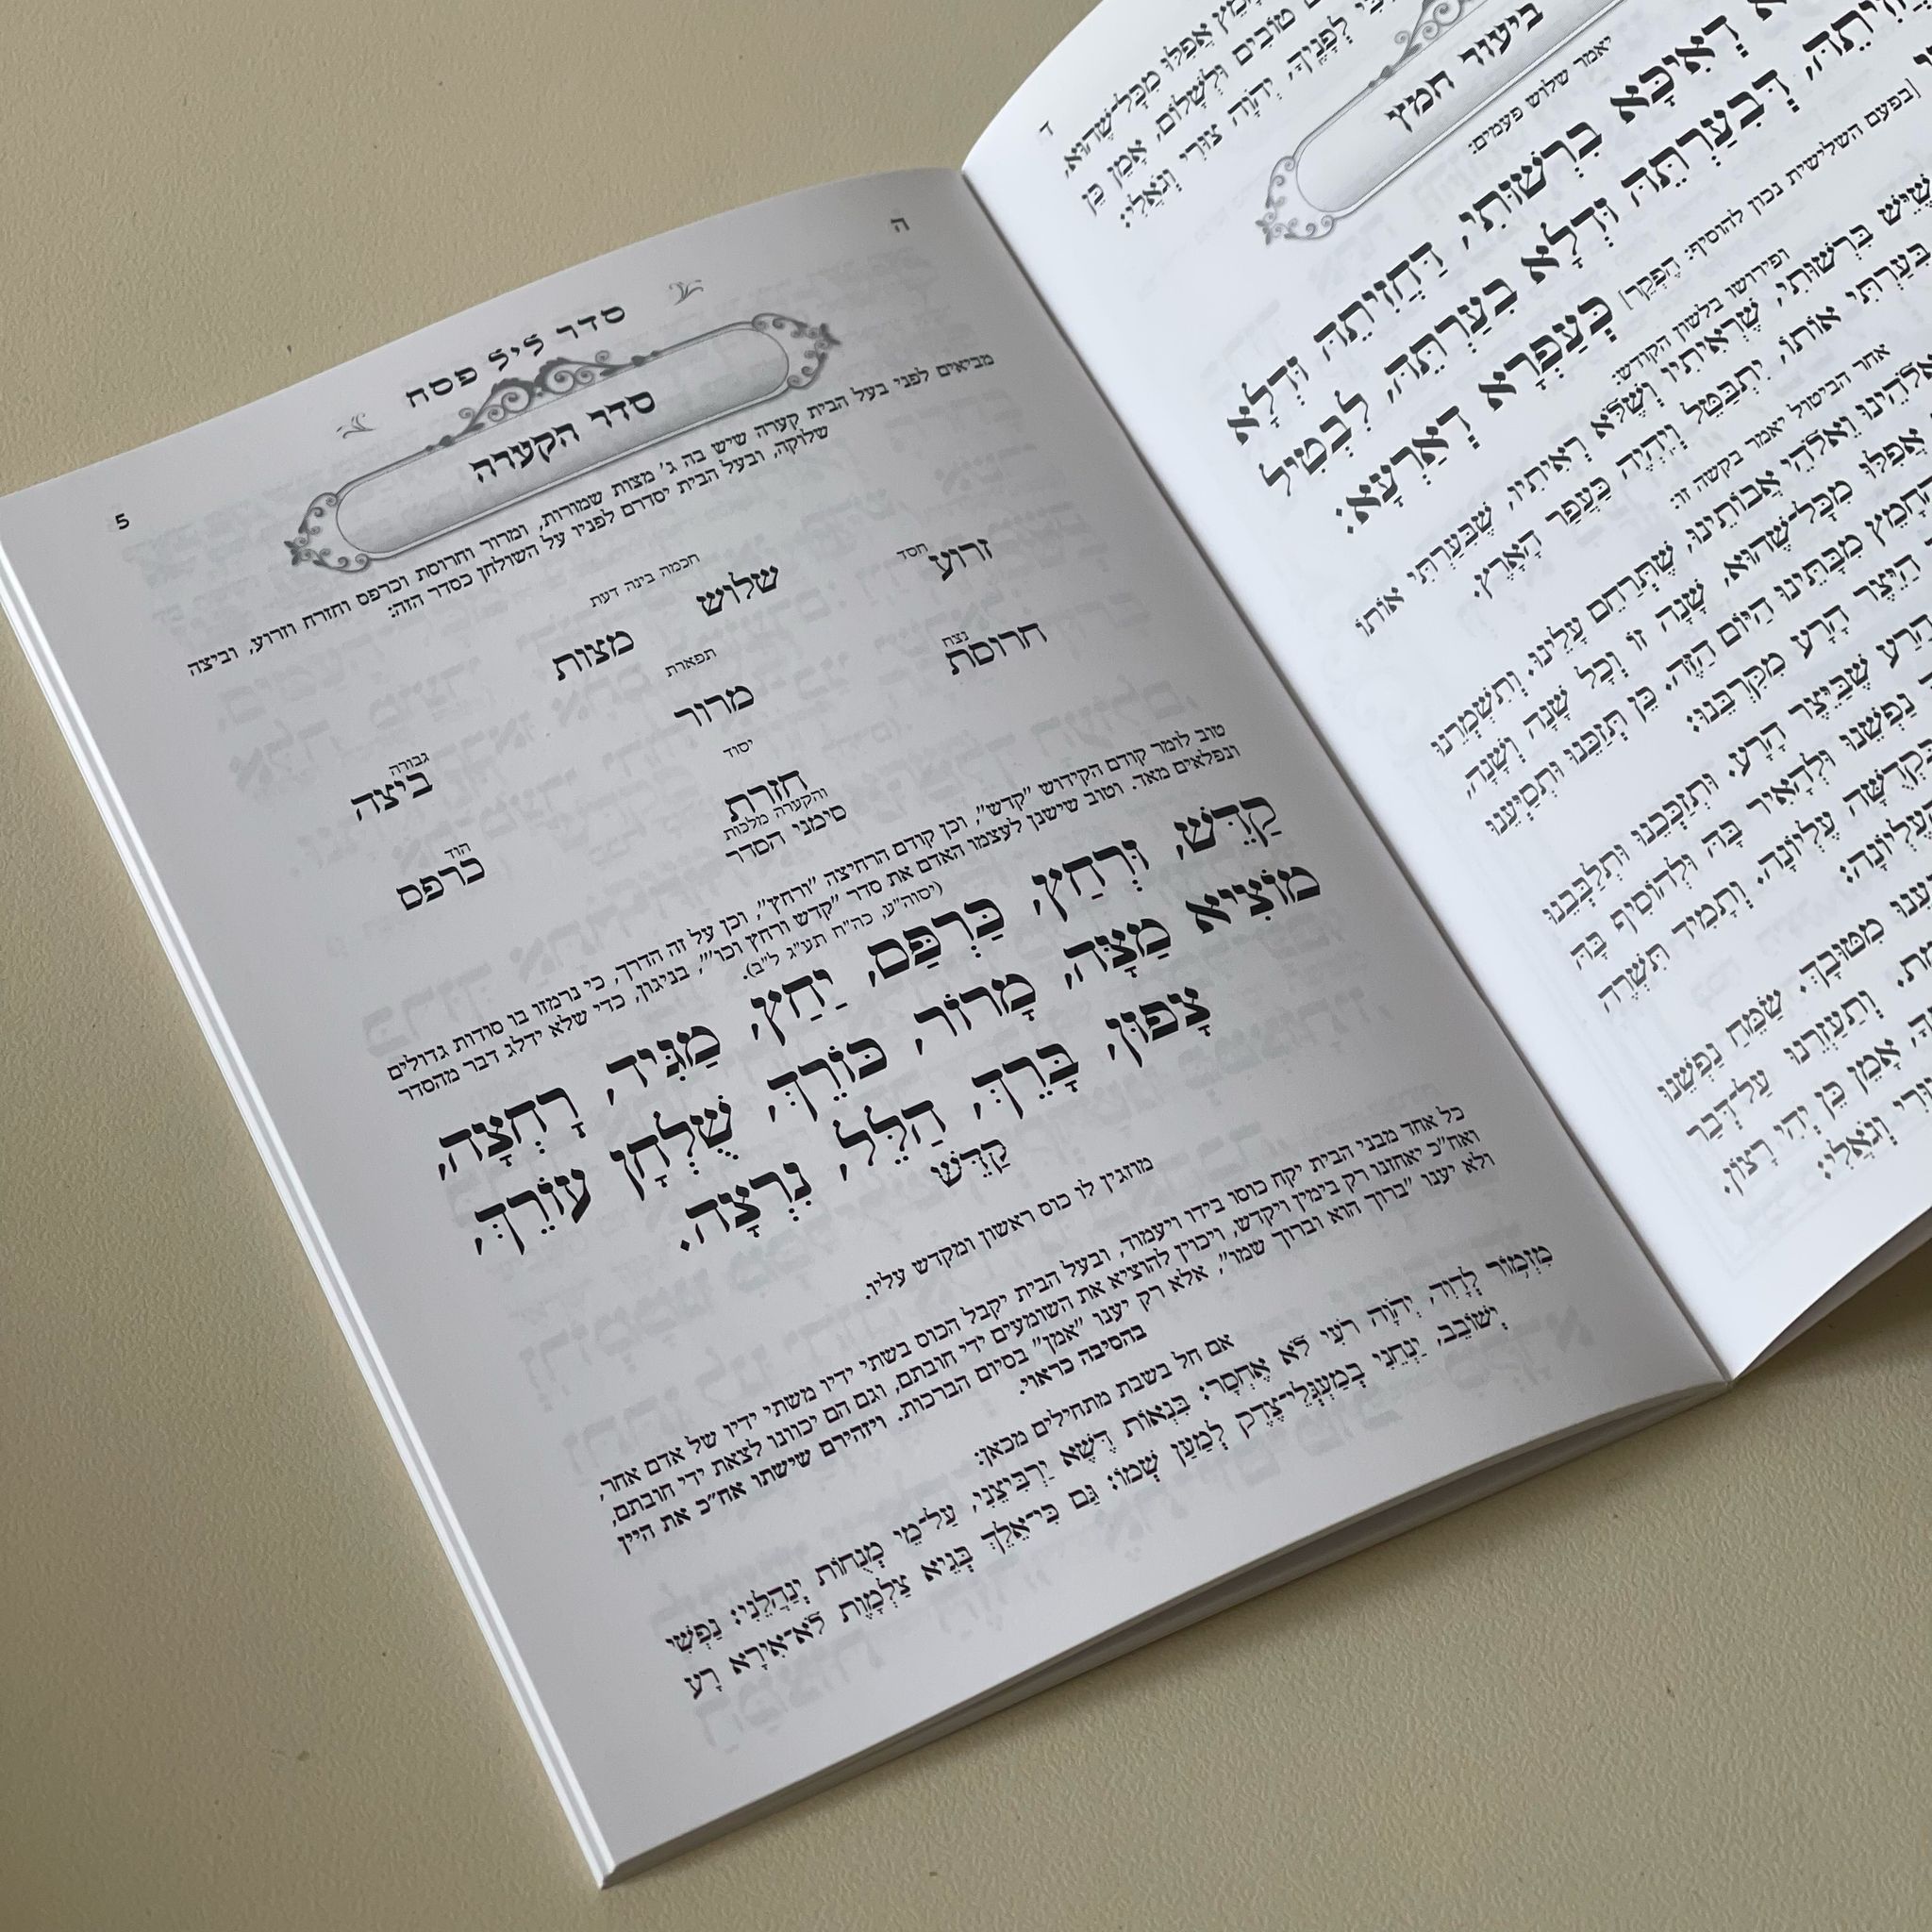 ד
אֲפִלּוּ מִכָּל־שֶׁהוּא,
טוֹבִים וּלְשָׁלוֹם, אָמֵן כֵּן
לְפָנֶיךָ, יְהֹוָה צוּרִי וְגֹאֲלִי:
ביעור חמץ
יאמר שלוש פעמים:
דְּאִיכָּא בִרְשׁוּתִי, דַּחֲזִיתֵהּ וּדְלָא
דְּבִעַרְתֵּהּ וּדְלָא בִעַרְתֵּהּ, לִבְטִיל
[בפעם השלישית נכון להוסיף: הֶפְקֵר] כְּעַפְרָא דְאַרְעָא:
ופירושו בלשון הקודש:
שֶׁיֵּשׁ בִּרְשׁוּתִי, שֶׁרְאִיתִיו וְשֶׁלֹּא רְאִיתִיו, שֶׁבִּעַרְתִּי אוֹתוֹ
בִּעַרְתִּי אוֹתוֹ, יִתְבַּטֵּל וְיִהְיֶה כַּעֲפַר הָאָרֶץ.
אחר הביטול יאמר בקשה זו:
אֱלֹהֵינוּ וֵאלֹהֵי אֲבוֹתֵינוּ, שֶׁתְּרַחֵם עָלֵינוּ. וְתִשְׁמְרֵנוּ
אֲפִלּוּ מִכָּל־שֶׁהוּא, שָׁנָה זוֹ וְכָל שָׁנָה וְשָׁנָה,
הֶחָמֵץ מִבָּתֵּינוּ הַיּוֹם הַזֶּה. כֵּן תְּזַכֵּנוּ וּתְסַיְּעֵנוּ
הַיֵּצֶר הָרָע מִקִּרְבֵּנוּ:
הָרַע שֶׁבְּיֵצֶר הָרָע. וּתְזַכְּכֵנוּ וּתְלַבְּבֵנוּ
נַפְשֵׁנוּ וּלְהָאִיר בָּהּ וּלְהוֹסִיף בָּהּ
בִּקְדֻשָּׁה עֶלְיוֹנָה. וְתָמִיד תִּשְׁרֶה
הָעֶלְיוֹנָה:
מִטּוּבָךְ. שַׂמַּח נַפְשֵׁנוּ
וְתַעַזְרֵנוּ עַל־דְּבַר
אָמֵן כֵּן יְהִי רָצוֹן.
וְגֹאֲלִי:
5 סדר ליל פסח ה
סדר הקערה
מביאים לפני בעל הבית קערה שיש בה ג' מצות שמורות, ומרור וחרוסת וכרפס וחזרת וזרוע, וביצה
שלוקה, ובעל הבית יסדרם לפניו על השולחן כסדר הזה:
חסד
זרוע
חכמה בינה דעת
שלוש מצות
גבורה
ביצה
תפארת
מרור
נצח
חרוסת
יסוד
חזרת
הוד
כרפס
והקערה מלכות
סימני הסדר
טוב לומר קודם הקידוש "קדש", וכן קודם הרחיצה "ורחץ", וכן על זה הדרך, כי נרמזו בו סודות גדולים
ונפלאים מאד. וטוב שישנן לעצמו האדם את סדר "קדש ורחץ וכו'", בניגון, כדי שלא ידלג דבר מהסדר
(יסוה"ע, כה"ח תע"ג ל"ב).
קַדֵּשׁ, וּרְחַץ, כַּרְפַּס, יַחַץ, מַגִּיד, רָחְצָה,
מוֹצִיא מַצָּה, מָרוֹר, כּוֹרֵךְ, שֻׁלְחָן עוֹרֵךְ,
צָפוּן, בָּרֵךְ, הַלֵּל, נִרְצָה.
קַדֵּשׁ
מוזגין לו כוס ראשון ומקדש עליו.
כל אחד מבני הבית יקח כוסו בידו ויעמוד, ובעל הבית יקבל הכוס בשתי ידיו משתי ידיו של אדם אחר,
ואח"כ יאחזנו רק בימין ויקדש, ויכוין להוציא את השומעים ידי חובתם, וגם הם יכוונו לצאת ידי חובתם,
ולא יענו "ברוך הוא וברוך שמו", אלא רק יענו "אמן" בסיום הברכות. ויזהירם שישתו אח"כ את היין
בהסיבה כראוי.
אם חל בשבת מתחילים מכאן:
מִזְמוֹר לְדָוִד, יְהֹוָה רֹעִי לֹא אֶחְסָר: בִּנְאוֹת דֶּשֶׁא יַרְבִּיצֵנִי, עַל־מֵי מְנֻחוֹת יְנַהֲלֵנִי: נַפְשִׁי
יְשׁוֹבֵב, יַנְחֵנִי בְמַעְגְּלֵי־צֶדֶק לְמַעַן שְׁמוֹ: גַּם כִּי־אֵלֵךְ בְּגֵיא צַלְמָוֶת לֹא־אִירָא רָע